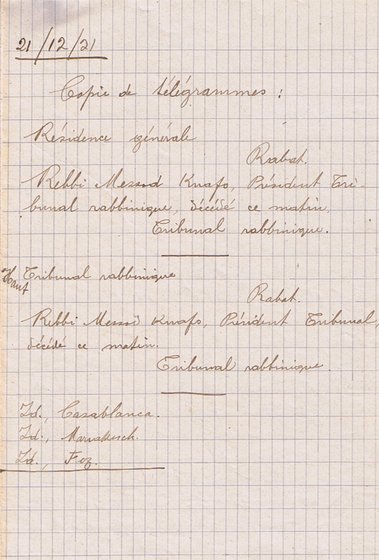 21/12/21
Copie de télégrammes :
Résidence générale
Rabat.
Rebbi Messod Knafo, Président Tri-
bunal rabbinique, décédé ce matin.
Tribunal rabbinique.
Haut Tribunal rabbinique
Rabat.
Rebbi Messod Knafo, Président Tribunal,
décédé ce matin.
Tribunal rabbinique.
Id., Casablanca.
Id., Marrakesch.
Id., Fez.